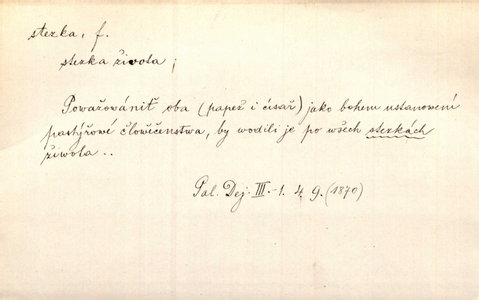 stezka, f.
stezka života;
Považovániť oba (papež i císař) jako bohem ustanovení
pastýřové člowěčenstwa, by wodili je po wšech stezkách
žiwota..
Pal. Dej. III.-1. 4. 9. (1870)